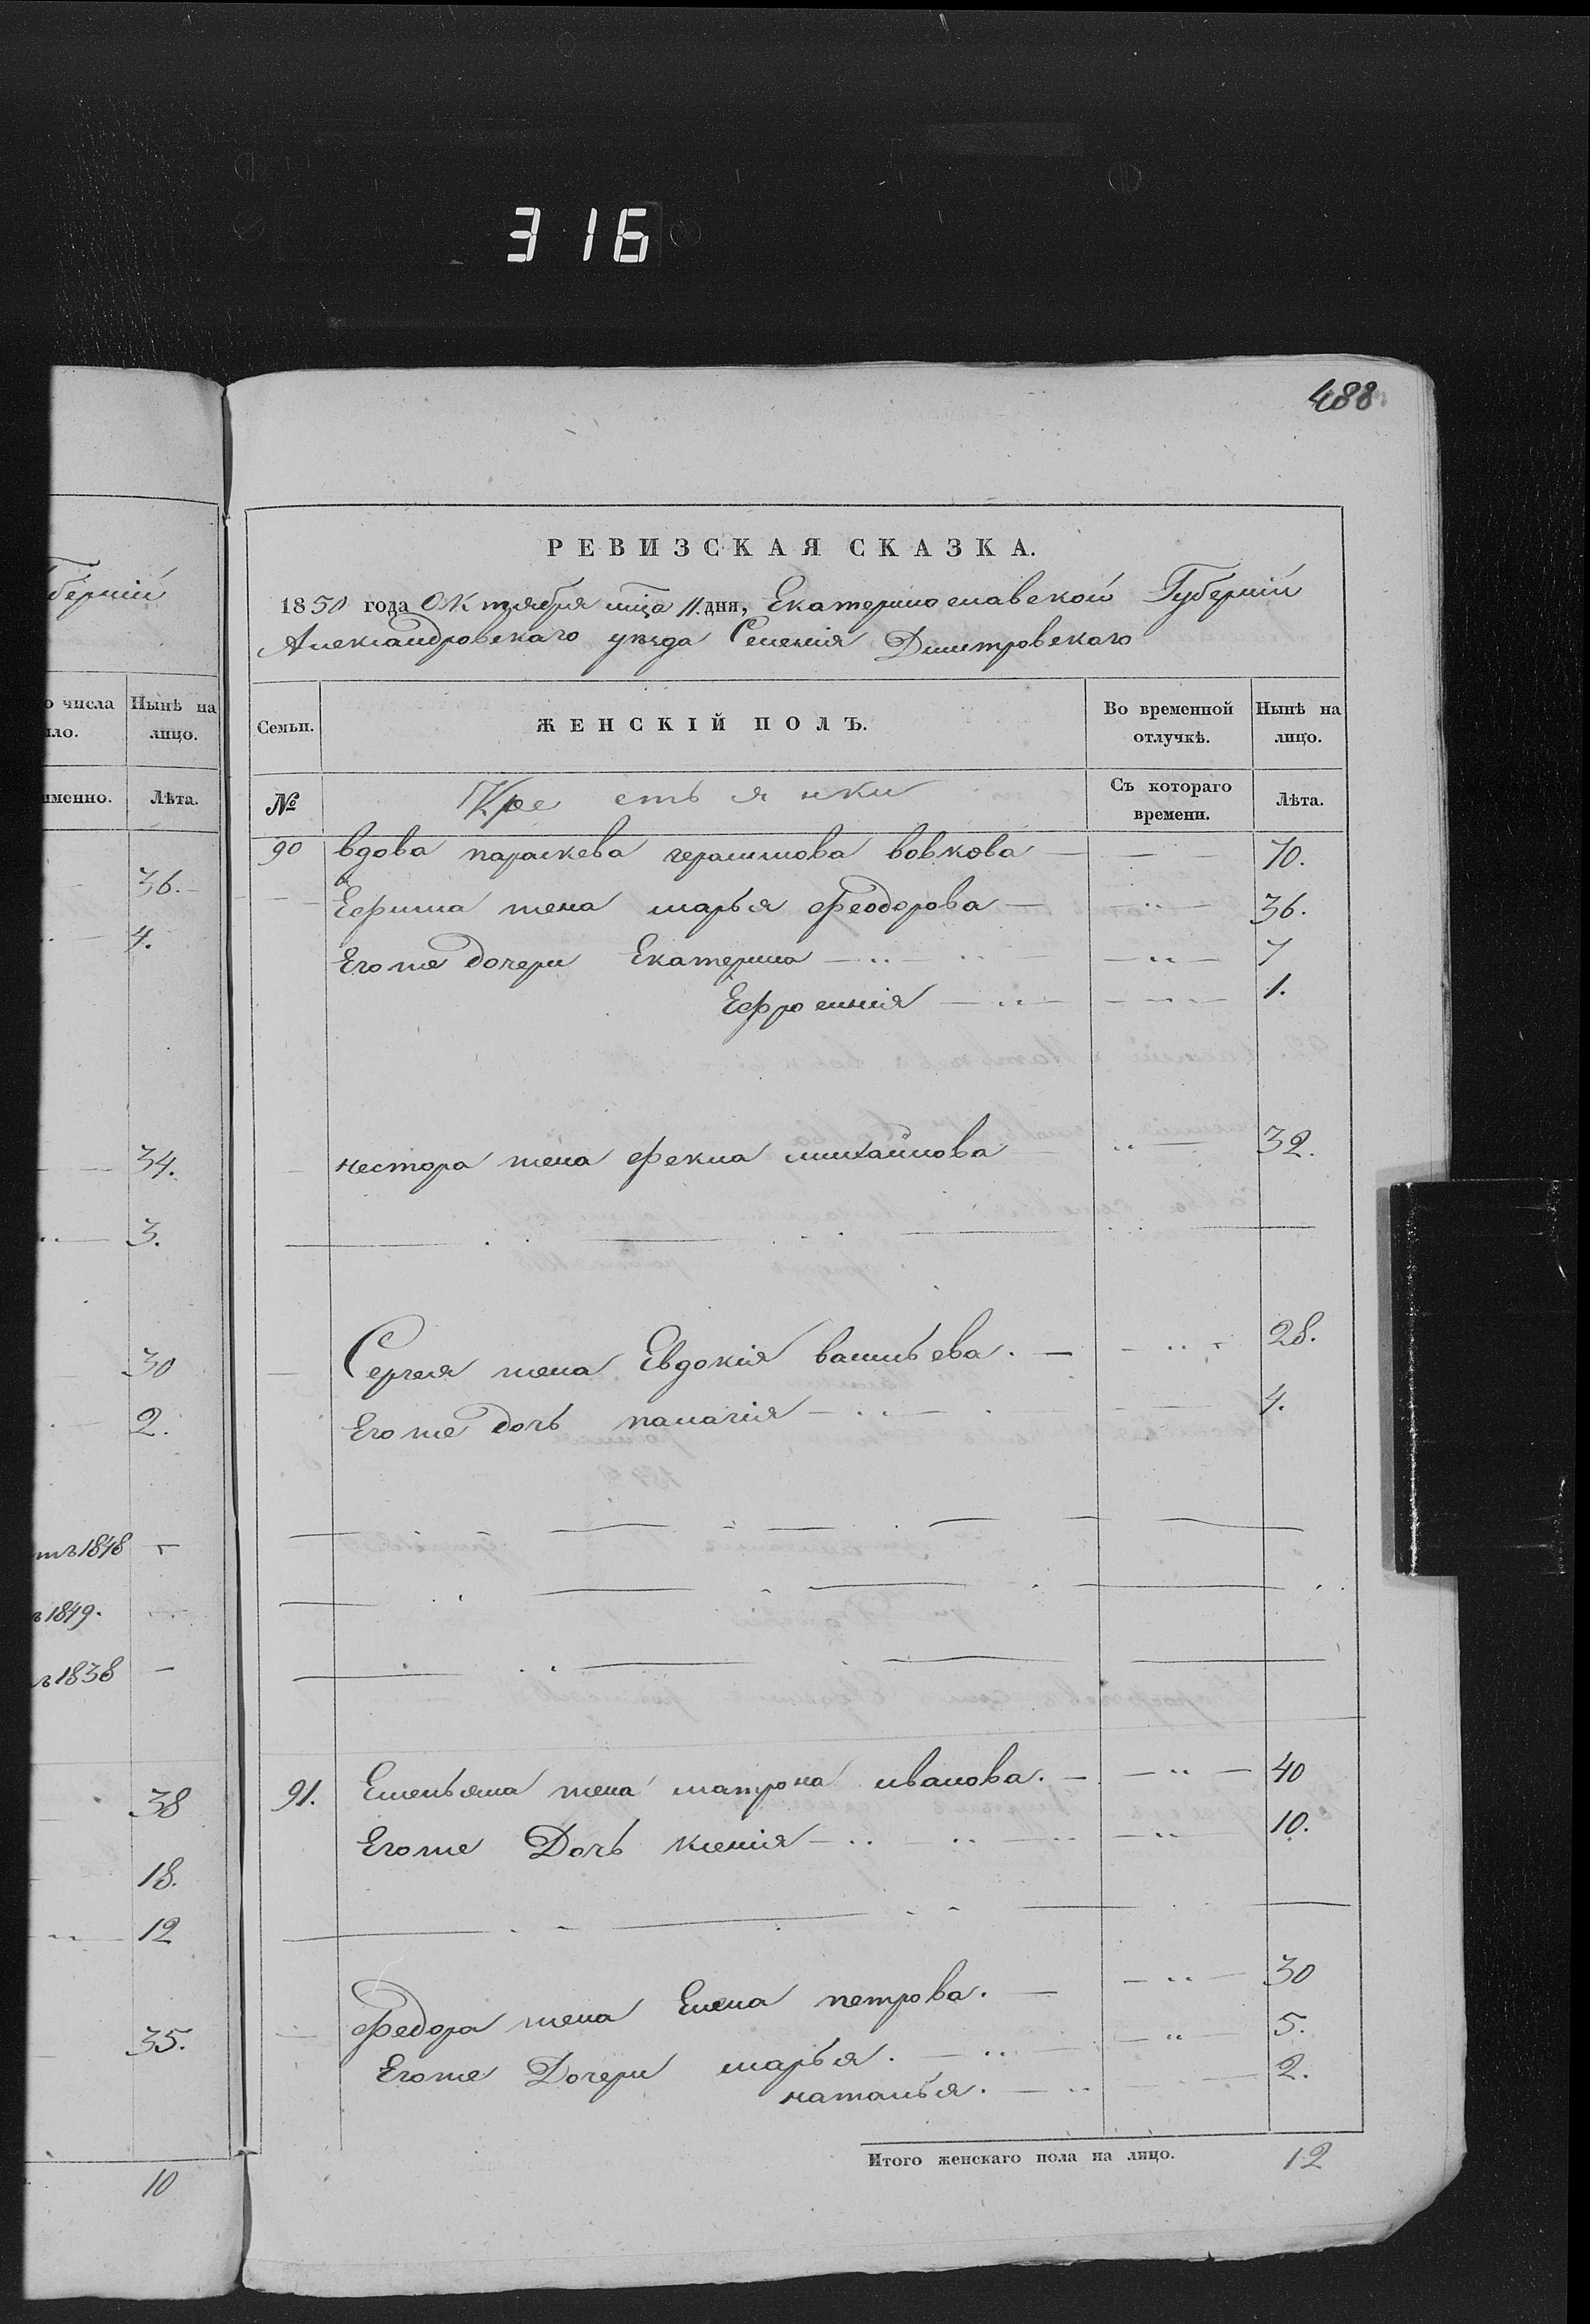 316
488
губерніи
РЕВИЗСКАЯ СКАЗКА.
1850 года Октября мца 11 дня, Екатеринославской Губерніи
Александровскаго уезда Селенія Дмитровскаго
о числа
ыло.
Нынѣ на
лицо.
именно.
Лѣта.
Семьи.
ЖЕНСКІЙ ПОЛЪ.
Во временной
отлучкѣ.
Нынѣ на
лицо.
№
Крестьянки
Съ котораго
времени.
Лѣта.
90 вдова параскева герасимова вовкова 70.
Ефима жена марья Феодорова 36.
Егоже дочери Екатерина 7
Ефросинія 1.
нестора жена Фекла михайлова 32.
Сергея жена Евдокія васильева. 28.
Егоже дочь палагія 4.
91. Емельяна жена матрона иванова. 40
Егоже Дочь ксенія 10.
Федора жена Елена петрова. 30
Егоже Дочери марья. 5.
наталья. 2.
Итого женскаго пола на лицо. 12
36.
4.
34.
3.
30
2.
1848
1849.
1838
38
18.
12
35.
10